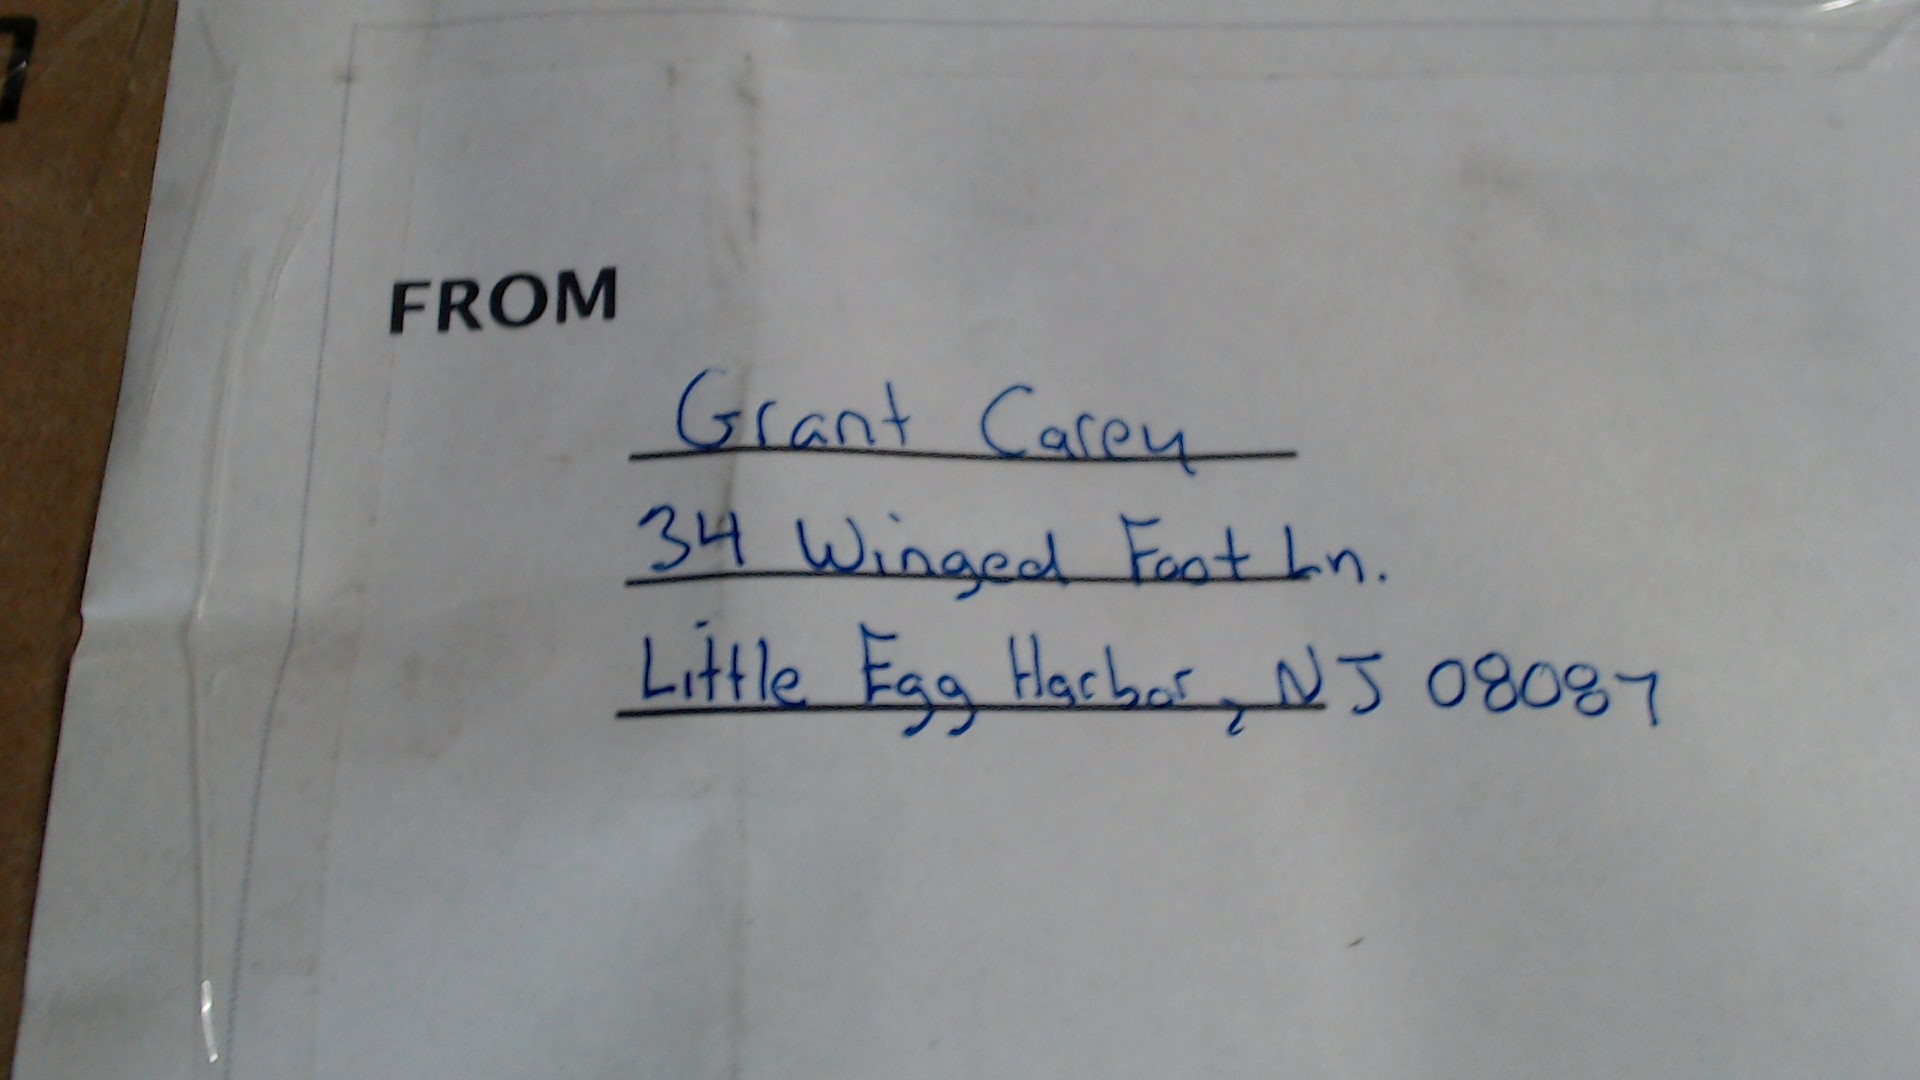 FROM
Grant Carey
34 Winged Foot Ln.
Little Egg Harbor, NJ 08087